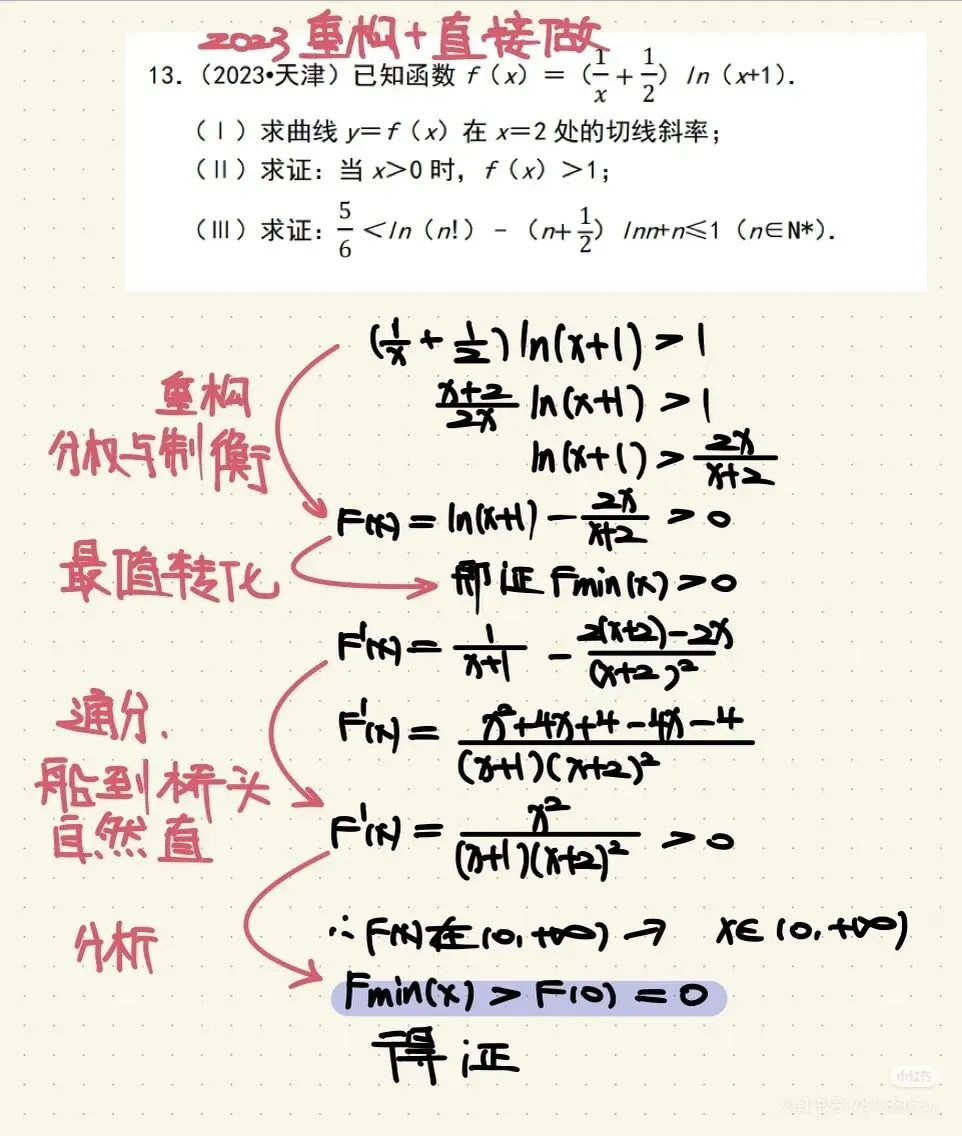 2023重构+直接做
13.（2023•天津）已知函数 f（x）=（1/x+1/2）ln（x+1）.
（Ⅰ）求曲线 y=f（x）在 x=2 处的切线斜率；
（Ⅱ）求证：当 x>0 时，f（x）>1；
（Ⅲ）求证：5/6<ln（n!）-（n+1/2）lnn+n≤1（n∈N*）.
(1/x + 1/2)ln(x+1) > 1
重构
(x+2)/2x ln(x+1) > 1
分权与制衡
ln(x+1) > 2x/(x+2)
F(x) = ln(x+1) - 2x/(x+2) > 0
最值转化
即证 Fmin(x) > 0
F'(x) = 1/(x+1) - (2(x+2)-2x)/(x+2)²
通分、
F'(x) = (x²+4x+4-4x-4)/((x+1)(x+2)²)
船到桥头
自然直
F'(x) = x²/((x+1)(x+2)²) > 0
∴ F(x)在(0,+∞) → x∈(0,+∞)
分析
Fmin(x) > F(0) = 0
得证
小红书